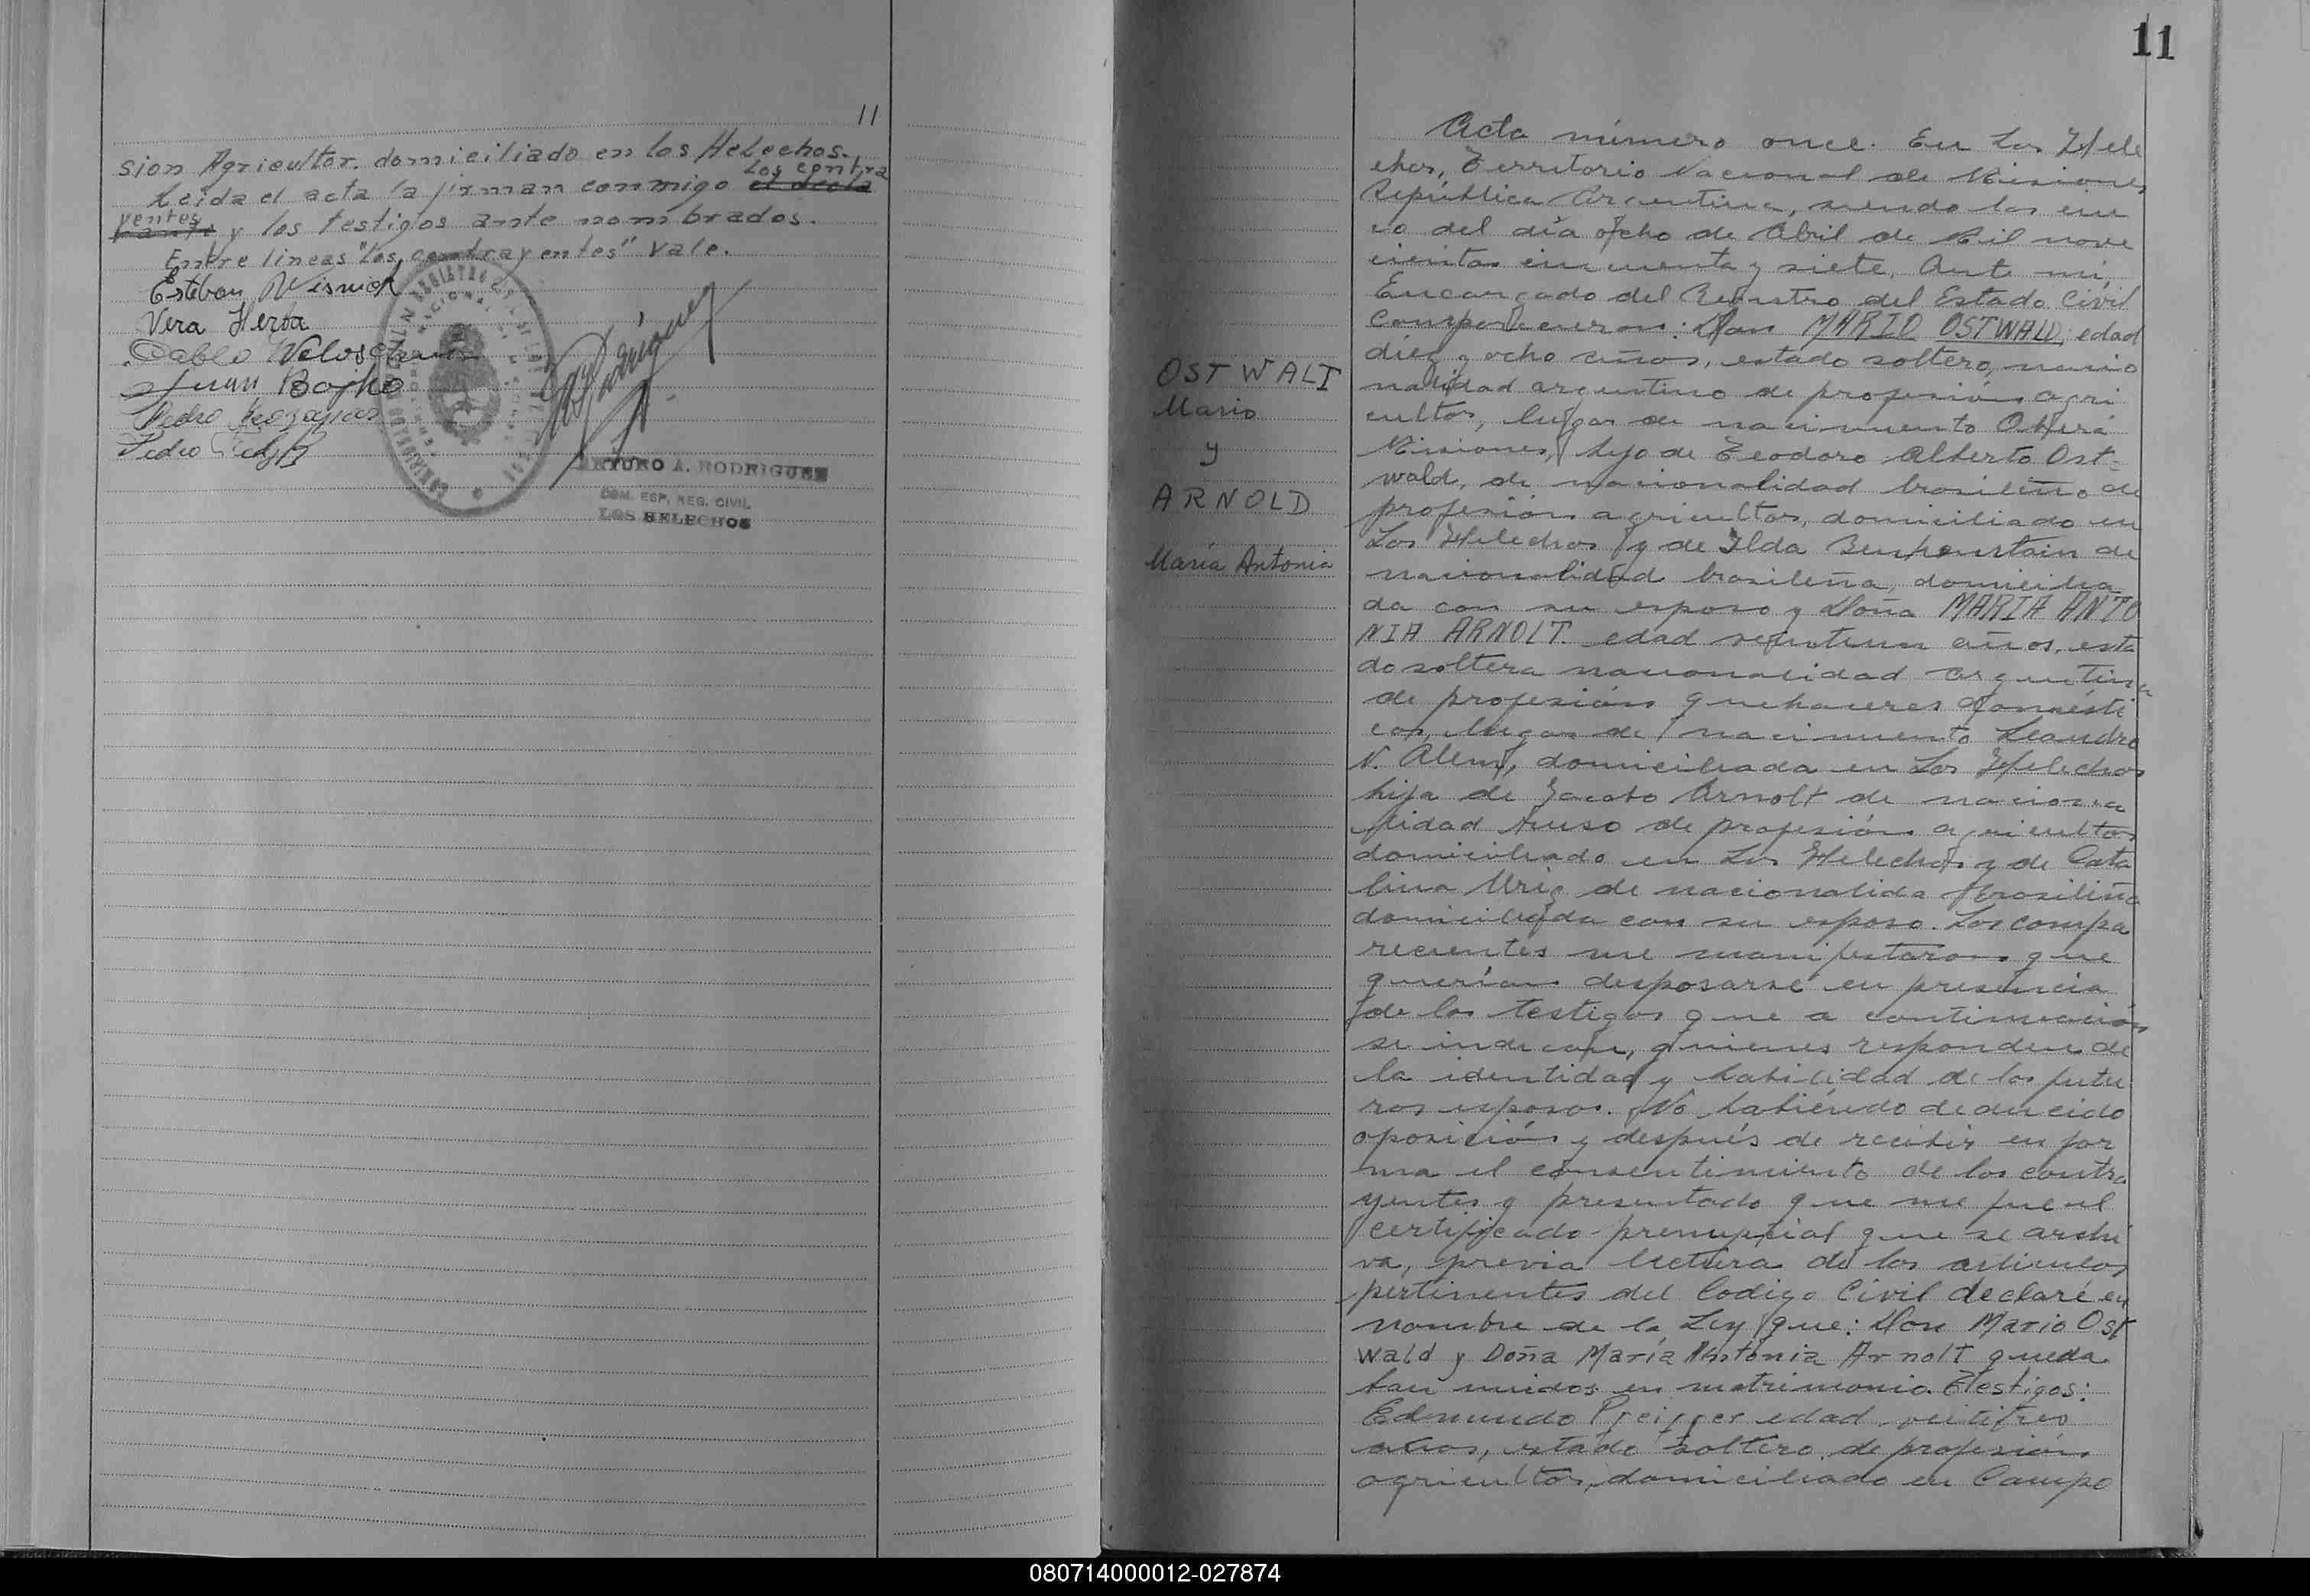 11
sion Agricultor. domiciliado en los Helechos.
los contra
Leida el acta la firman conmigo el decla
yentes
rante y los testigos ante nombrados.
Entre lineas "los contrayentes" vale.
Esteban Wisnick
Vera Herba
Pablo
Juan Bojko
Pedro
Pedro
ARTURO A. RODRIGUEZ
COM. ESP. REG. CIVIL
LOS HELECHOS
11
OSTWALT
Mario
y
ARNOLD
María Antonia
Acta número once. En Los Hele
chos, Territorio Nacional de Misiones,
República Argentina, siendo las
del día ocho de Abril de Mil nove
cientos cincuenta y siete. Ante mí,
Encargado del Registro del Estado Civil
Comparecieron: Don MARIO OSTWALD, edad
diez y ocho años, estado soltero, nacio
nalidad argentino de profesión agri
cultor, lugar de nacimiento Oberá
Misiones, hijo de Teodoro Alberto Ost-
wald, de nacionalidad brasileño de
profesión agricultor, domiciliado en
Los Helechos y de Ilda de
nacionalidad brasileña, domicilia
da con su esposo y Doña MARIA ANTO
NIA ARNOLT. edad años, esta
do soltera nacionalidad argentina
de profesión quehaceres domésti
cos, lugar de nacimiento Leandro
N. Alem, domiciliada en Los Helechos
hija de Jacobo Arnolt de naciona
lidad ruso de profesión agricultor
domiciliado en Los Helechos y de Cata
lina Uriz de nacionalida brasileña
domiciliada con su esposo. Los compa
recientes me manifestaron que
querían desposarse en presencia
de los testigos que a continuación
se indican, quienes responden de
la identidad y habilidad de los futu
ros esposos. No habiendo deducido
oposición y después de recibir en for
ma el consentimiento de los contra
yentes y presentado que me fue el
certificado prenupcial que se archi
va, previa lectura de los artículos
pertinentes del Codigo Civil declaré en
nombre de la Ley que: Don Mario Ost
wald y Doña María Antonia Arnolt queda
ban unidos en matrimonio. Testigos:
Edmundo Pfeiffer edad veititres
años, estado soltero de profesión
agricultor, domiciliado en Campo
080714000012-027874